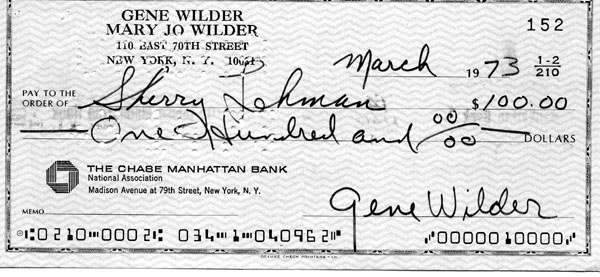 GENE WILDER
MARY JO WILDER
110 EAST 70TH STREET
NEW YORK, N. Y.
152
March 1973
1-2
210
PAY TO THE
ORDER OF Sherry Lehman $100.00
One Hundred and 00/00 DOLLARS
THE CHASE MANHATTAN BANK
National Association
Madison Avenue at 79th Street, New York, N. Y.
Gene Wilder
MEMO
⑆0210⑉0002⑆ 034⑉1⑉040962⑈ ⑈0000010000⑈
DELUXE CHECK PRINTERS